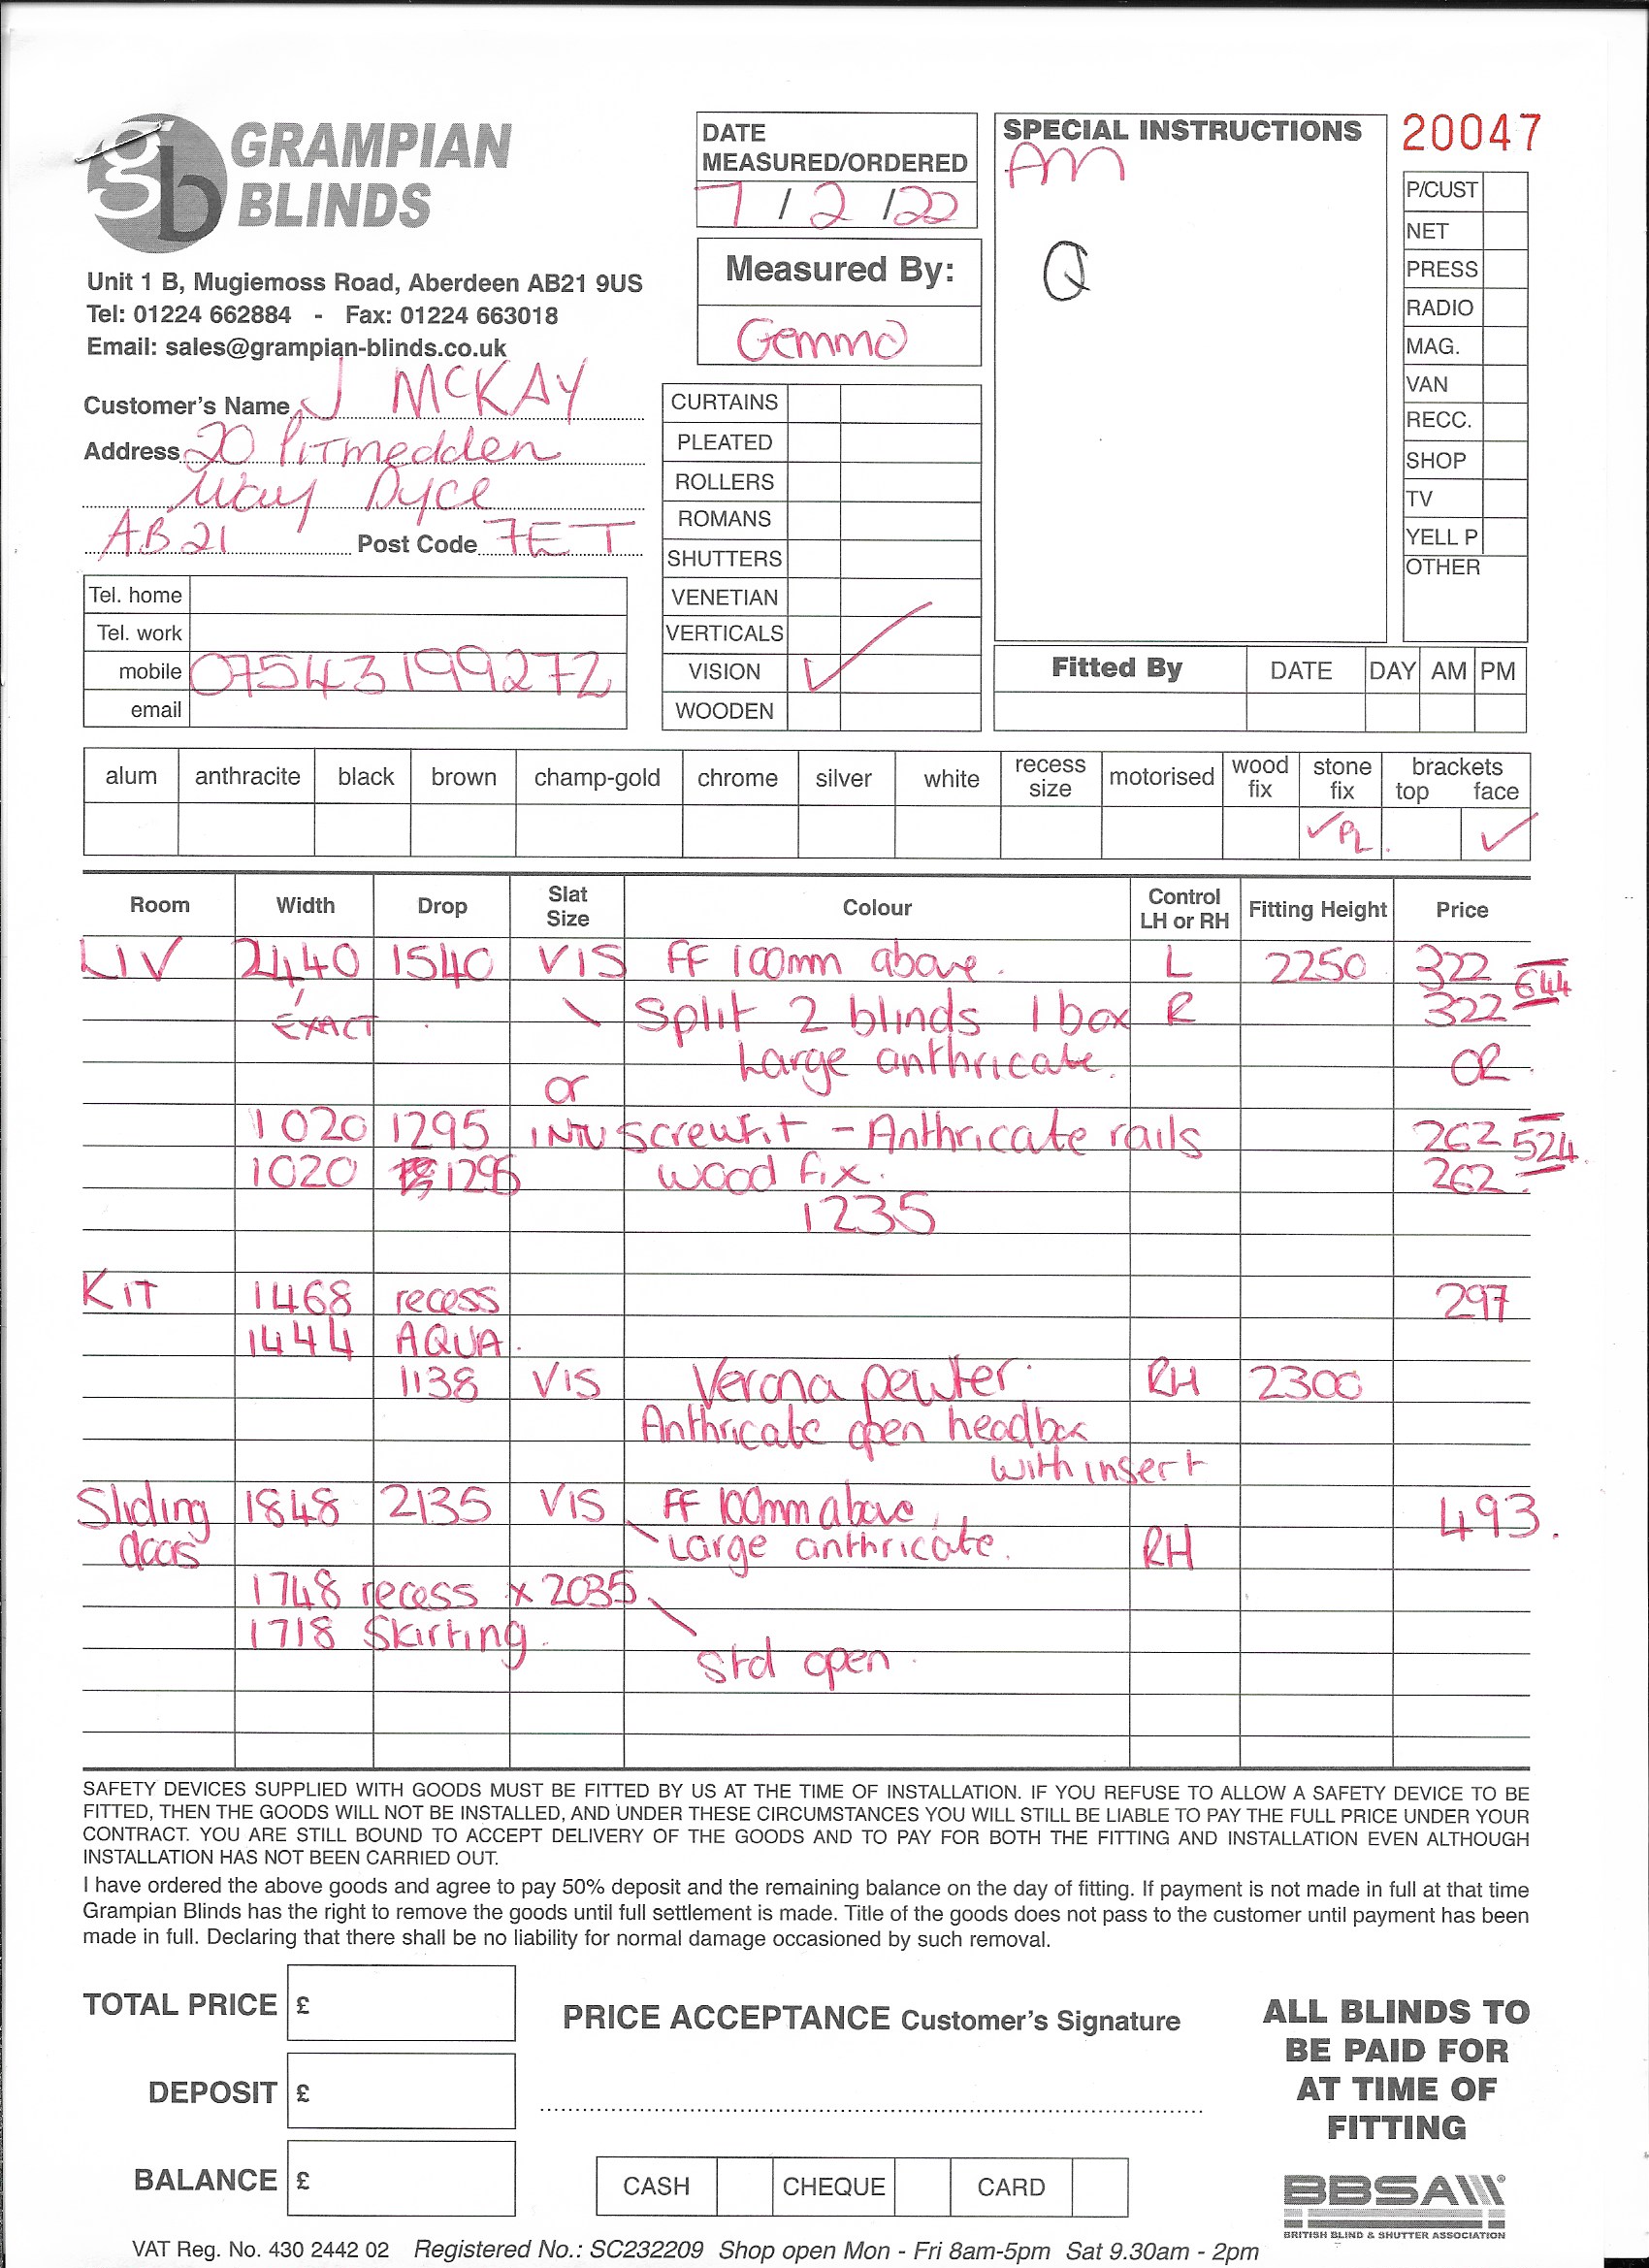 GRAMPIAN
BLINDS
Unit 1 B, Mugiemoss Road, Aberdeen AB21 9US
Tel: 01224 662884 - Fax: 01224 663018
Email: sales@grampian-blinds.co.uk
Customer's Name J MCKAY
Address 20 Pitmedden
Way Dyce
AB21 Post Code 7ET
Tel. home
Tel. work
mobile 07543199272
email
DATE
MEASURED/ORDERED
7 / 2 / 22
Measured By:
Gemma
CURTAINS
PLEATED
ROLLERS
ROMANS
SHUTTERS
VENETIAN
VERTICALS
VISION ✓
WOODEN
SPECIAL INSTRUCTIONS
AM
Q
20047
P/CUST
NET
PRESS
RADIO
MAG.
VAN
RECC.
SHOP
TV
YELL P
OTHER
Fitted By DATE DAY AM PM
alum anthracite black brown champ-gold chrome silver white recess size motorised wood fix stone fix brackets top face
✓ PL. ✓
Room Width Drop Slat Size Colour Control LH or RH Fitting Height Price
LIV 2440 1540 VIS FF 100mm above. L 2250 322 644
EXACT Split 2 blinds 1 box R 322
Large anthricate. OR
or
1020 1295 INTU screwfit - Anthricate rails 262 524
1020 1295 wood fix. 262
1235
KIT 1468 recess 297
1444 AQUA.
1138 VIS Verona pewter RH 2300
Anthricate open headbox
with insert
Sliding 1848 2135 VIS FF 100mm above, 493.
doors Large anthricate. RH
1748 recess x 2035
1718 Skirting.
Std open
SAFETY DEVICES SUPPLIED WITH GOODS MUST BE FITTED BY US AT THE TIME OF INSTALLATION. IF YOU REFUSE TO ALLOW A SAFETY DEVICE TO BE
FITTED, THEN THE GOODS WILL NOT BE INSTALLED, AND UNDER THESE CIRCUMSTANCES YOU WILL STILL BE LIABLE TO PAY THE FULL PRICE UNDER YOUR
CONTRACT. YOU ARE STILL BOUND TO ACCEPT DELIVERY OF THE GOODS AND TO PAY FOR BOTH THE FITTING AND INSTALLATION EVEN ALTHOUGH
INSTALLATION HAS NOT BEEN CARRIED OUT.
I have ordered the above goods and agree to pay 50% deposit and the remaining balance on the day of fitting. If payment is not made in full at that time
Grampian Blinds has the right to remove the goods until full settlement is made. Title of the goods does not pass to the customer until payment has been
made in full. Declaring that there shall be no liability for normal damage occasioned by such removal.
TOTAL PRICE £
DEPOSIT £
BALANCE £
PRICE ACCEPTANCE Customer's Signature
CASH CHEQUE CARD
ALL BLINDS TO
BE PAID FOR
AT TIME OF
FITTING
BBSA
BRITISH BLIND & SHUTTER ASSOCIATION
VAT Reg. No. 430 2442 02 Registered No.: SC232209 Shop open Mon - Fri 8am-5pm Sat 9.30am - 2pm